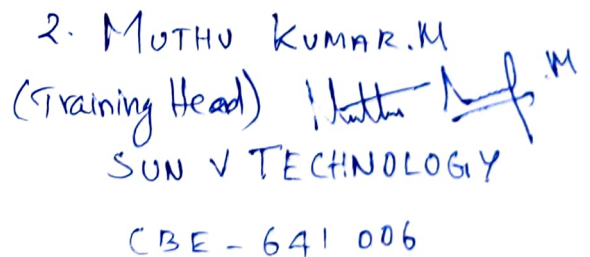 2. MUTHU KUMAR.M
(Training Head) Muthu .M
SUN V TECHNOLOGY
CBE - 641 006